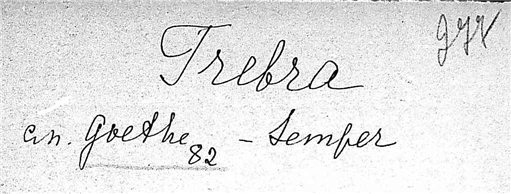 Trebra
an. Goethe 82 - Semper